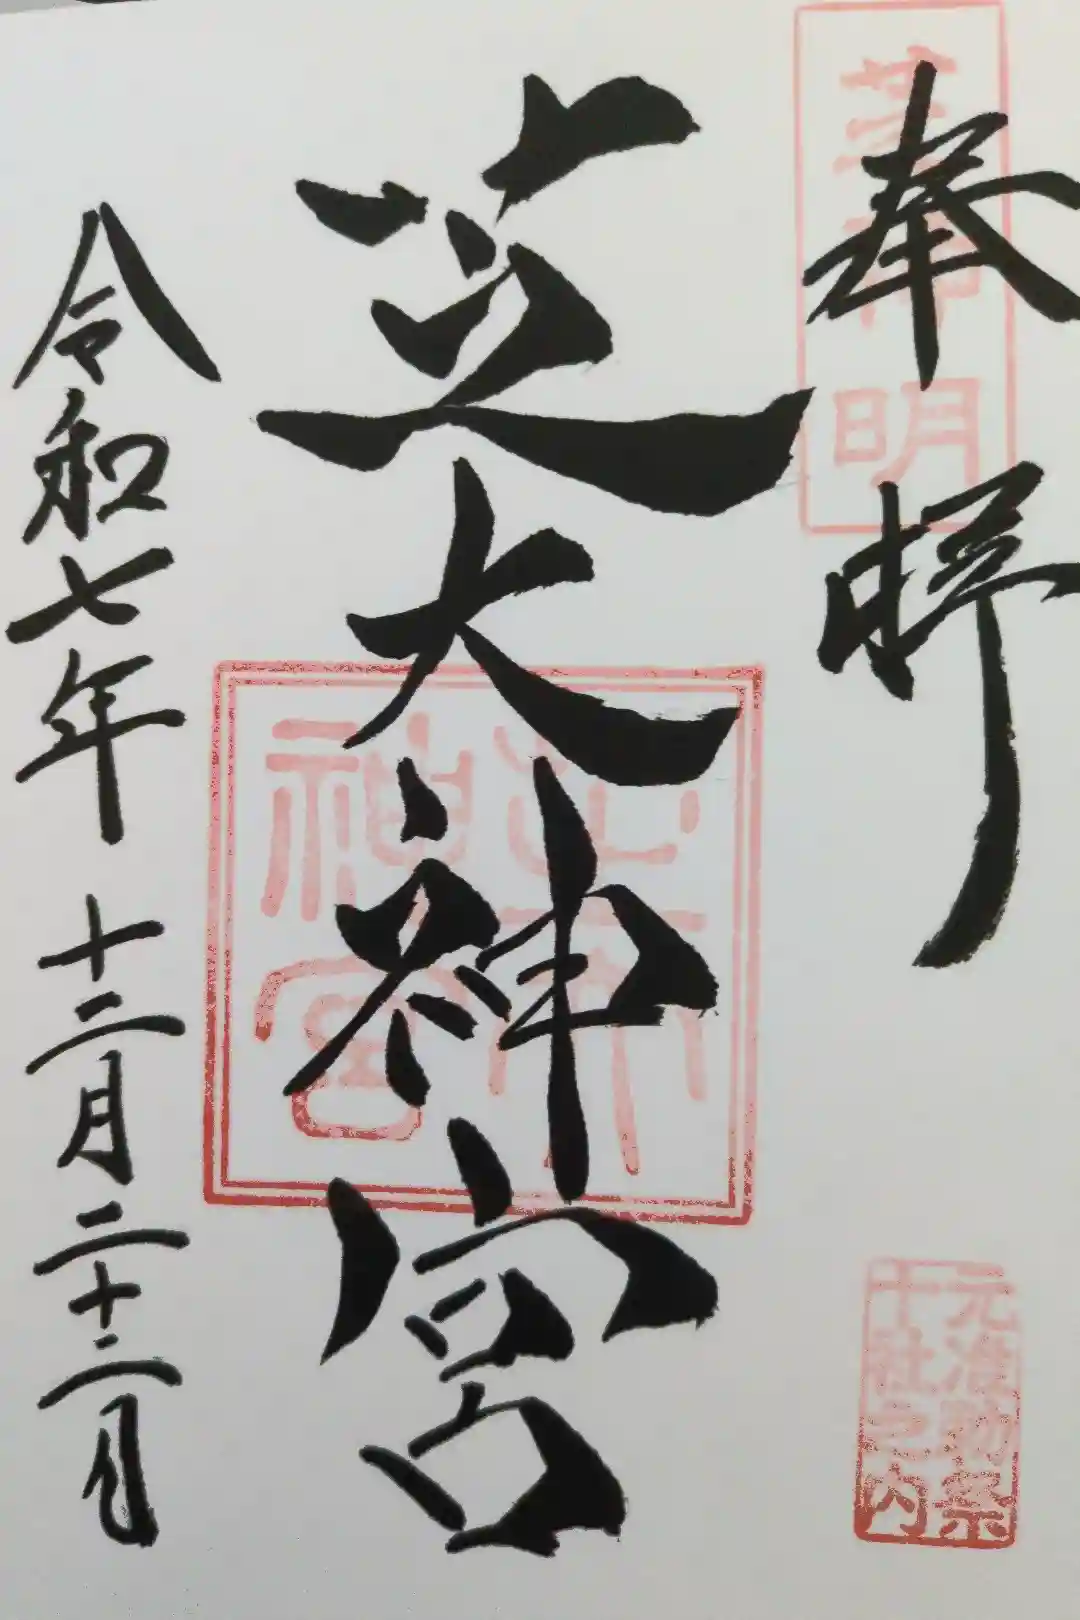 奉拝
芝神明
元准勅祭
十社之内
芝大神宮
芝大神宮
令和七年 十二月二十二日